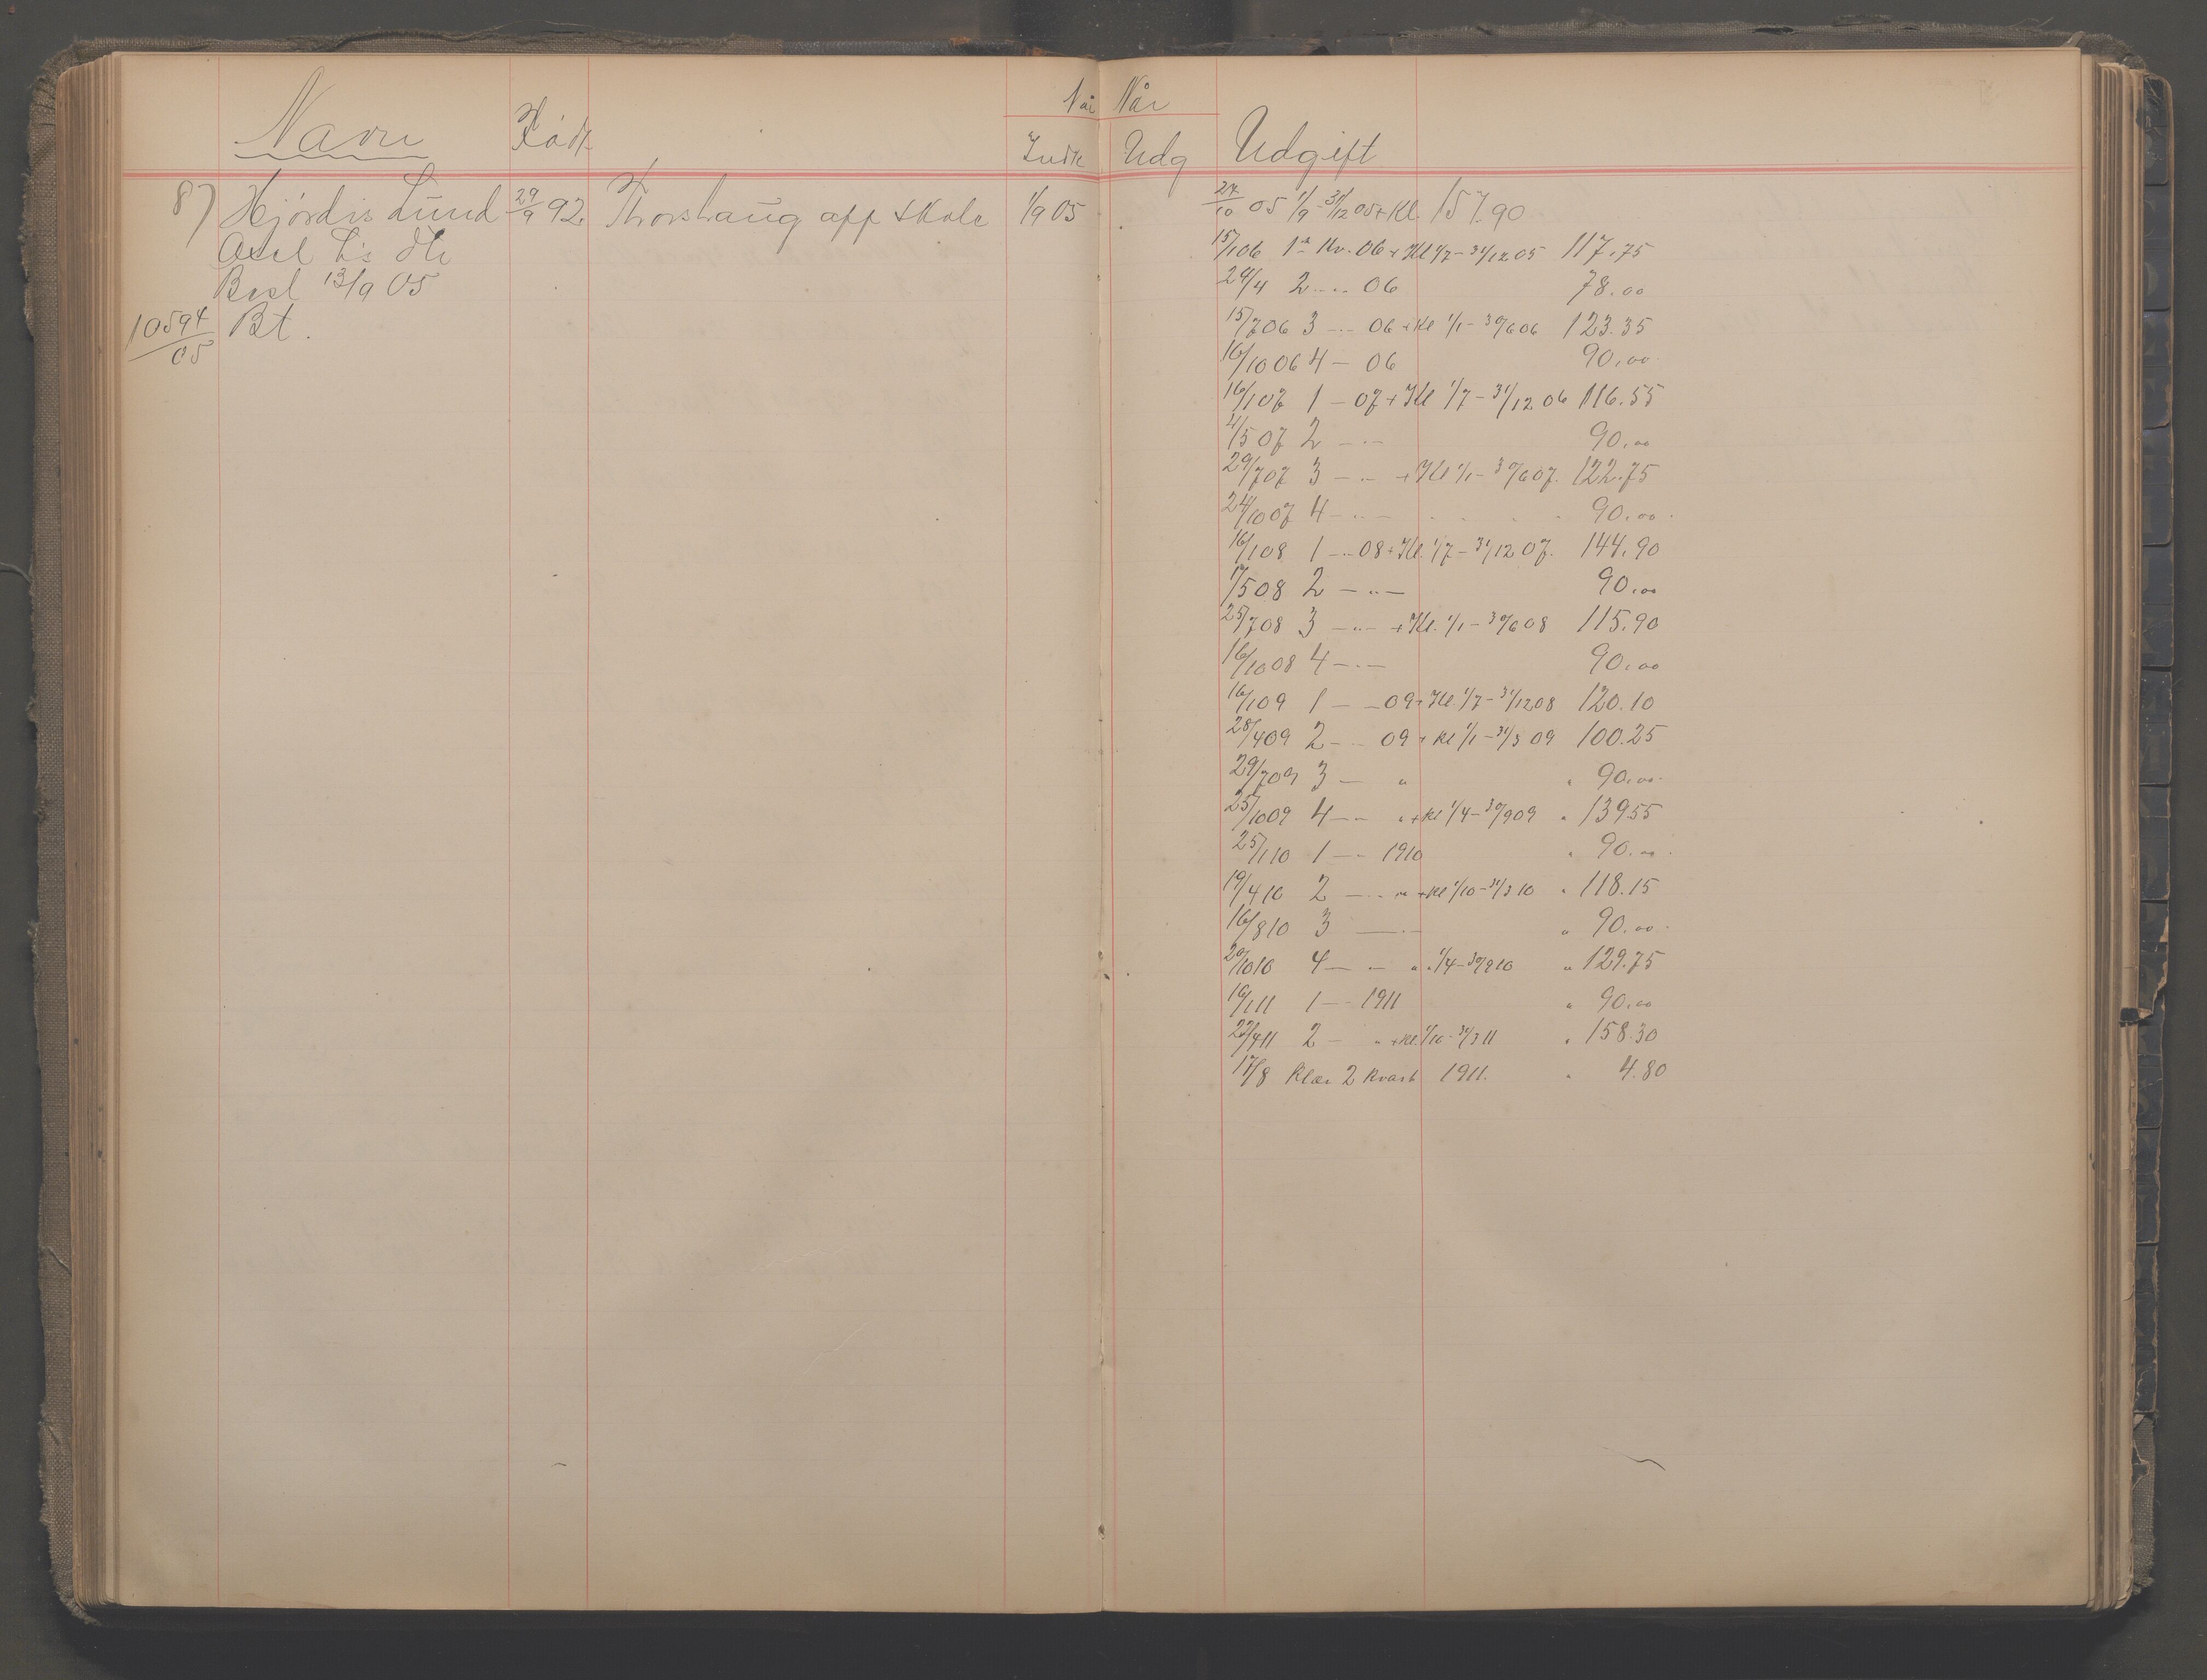 Navn Födt Når Indk
87 Hjördis Lund 29/9 92. Thorshaug opf skole 1/9 05
Axel L's dtr
Besl 13/9 05
10594/05 Bt.
Når Udg Udgift
27/10 05 1/9 - 31/12 05 + Kl. 157.90
15/1 06 1ste Kv. 06 + Kl 1/7 - 31/12 05 117.75
24/4 2 -"- 06 78.00
15/7 06 3 -"- 06 + Kl 1/1 - 30/6 06 123.35
16/10 06 4 - 06 90.00
16/1 07 1 - 07 + Kl 1/7 - 31/12 06 116.55
4/5 07 2 -"- 90.00
29/7 07 3 -"- + Kl 1/1 - 30/6 07. 122.75
24/10 07 4 -"- 90.00
16/1 08 1 -"- 08 + Kl. 1/7 - 31/12 07. 144.90
1/5 08 2 -"- 90.00
25/7 08 3 -"- + Kl. 1/1 - 30/6 08 115.90
16/10 08 4 -"- 90.00
16/1 09 1 - - 09 + Kl. 1/7 - 31/12 08 120.10
28/4 09 2 - - 09 + Kl 1/1 - 31/3 09 100.25
29/7 09 3 - " " 90.00
25/10 09 4 - - " + Kl 1/4 - 30/9 09 " 139.55
25/1 10 1 -"- 1910 " 90.00
19/4 10 2 -"- " + Kl 1/10 - 31/3 10 " 118.15
16/8 10 3 -"- " 90.00
20/10 10 4 - - " " 1/4 - 30/9 10 " 129.75
16/1 11 1 -"- 1911 " 90.00
22/4 11 2 - " + Kl. 1/10 - 31/3 11 " 158.30
17/8 Klær 2 Kvart 1911. " 4.80